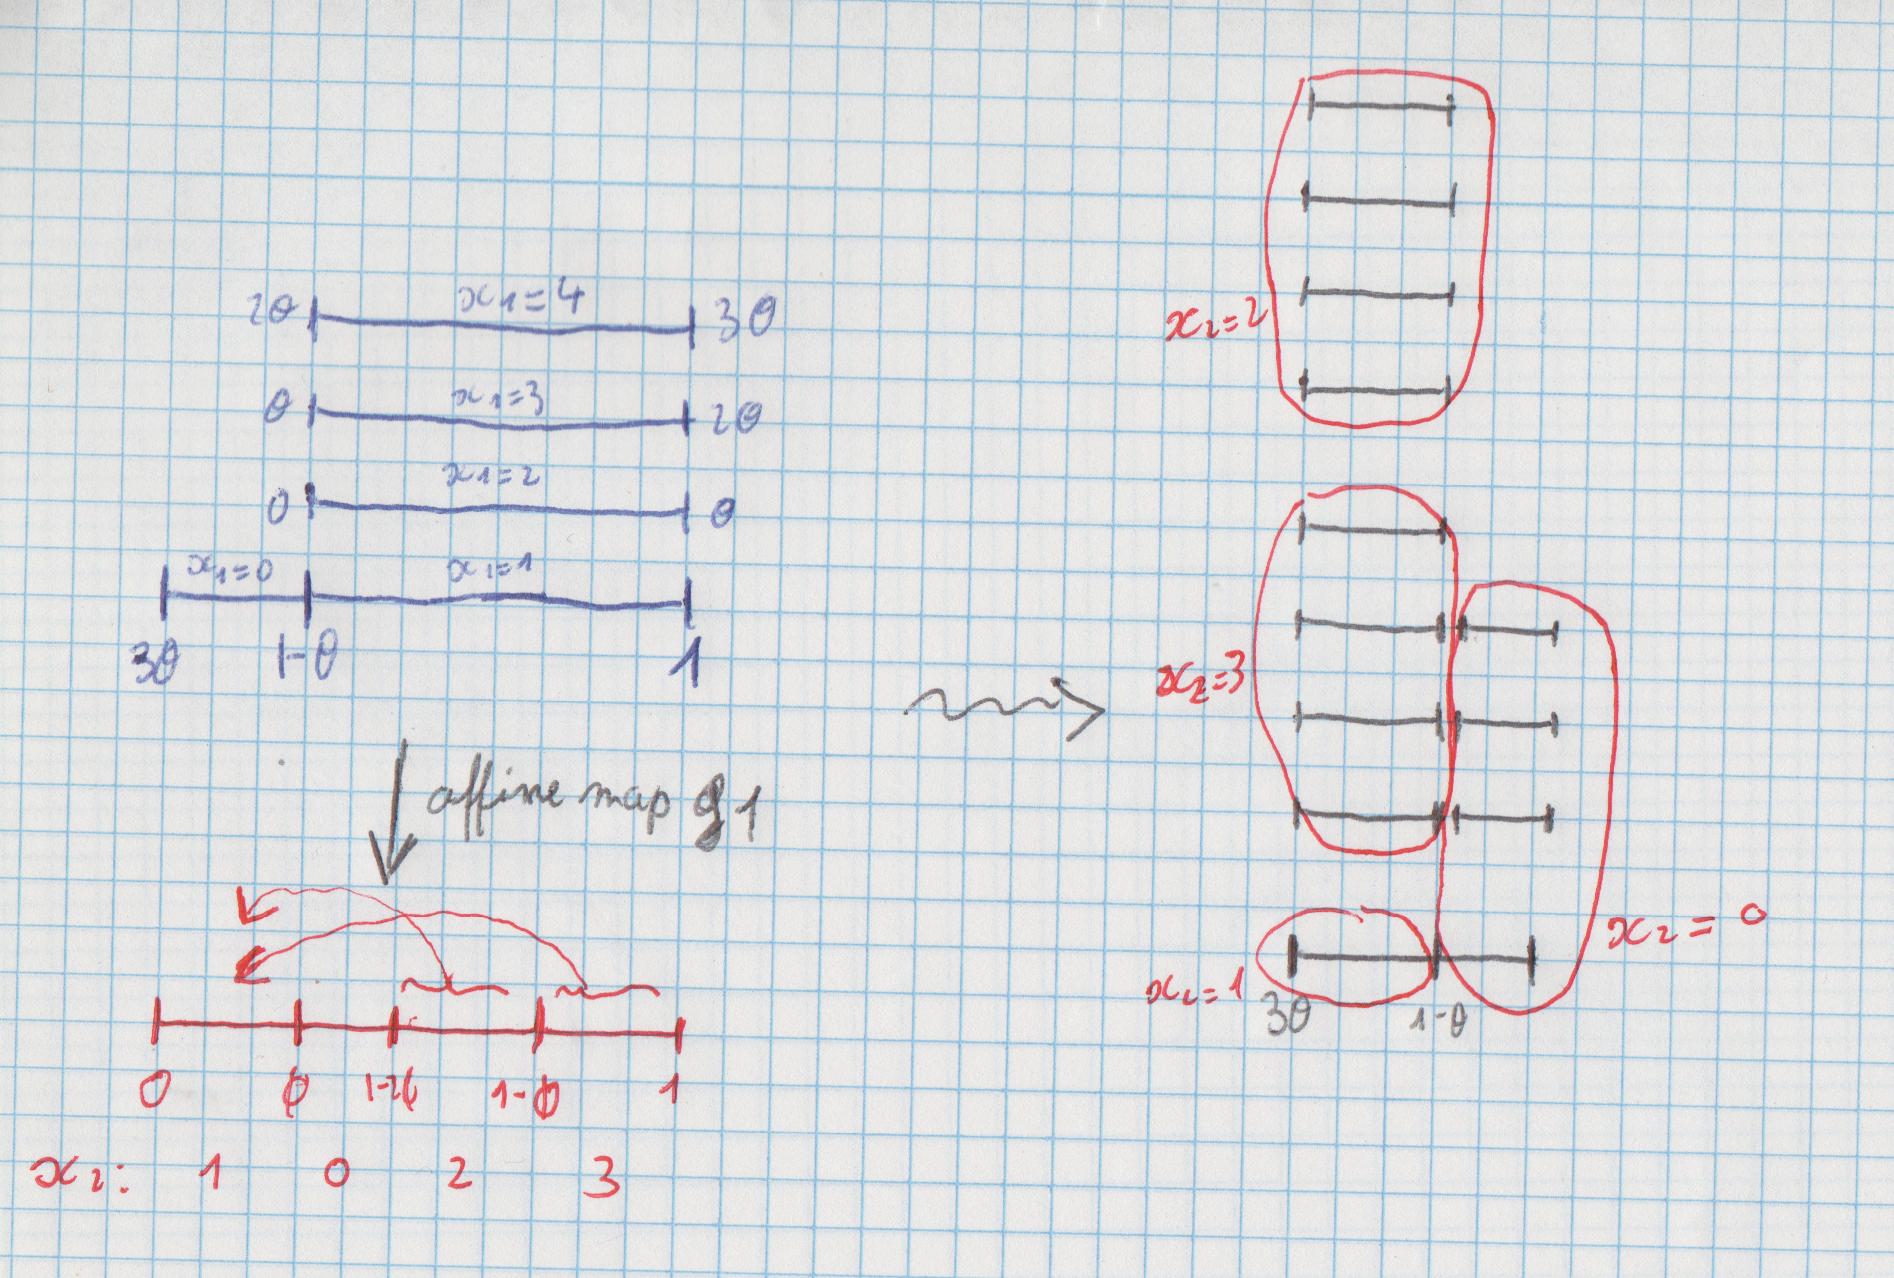 2θ x₁=4 3θ
θ x₁=3 2θ
0 x₁=2 θ
x₁=0 x₁=1
3θ 1-θ 1
affine map of 1
0 ϕ 1-2ϕ 1-ϕ 1
x₂: 1 0 2 3
x₂=2
x₂=3
x₂=0
x₂=1
3θ 1-θ